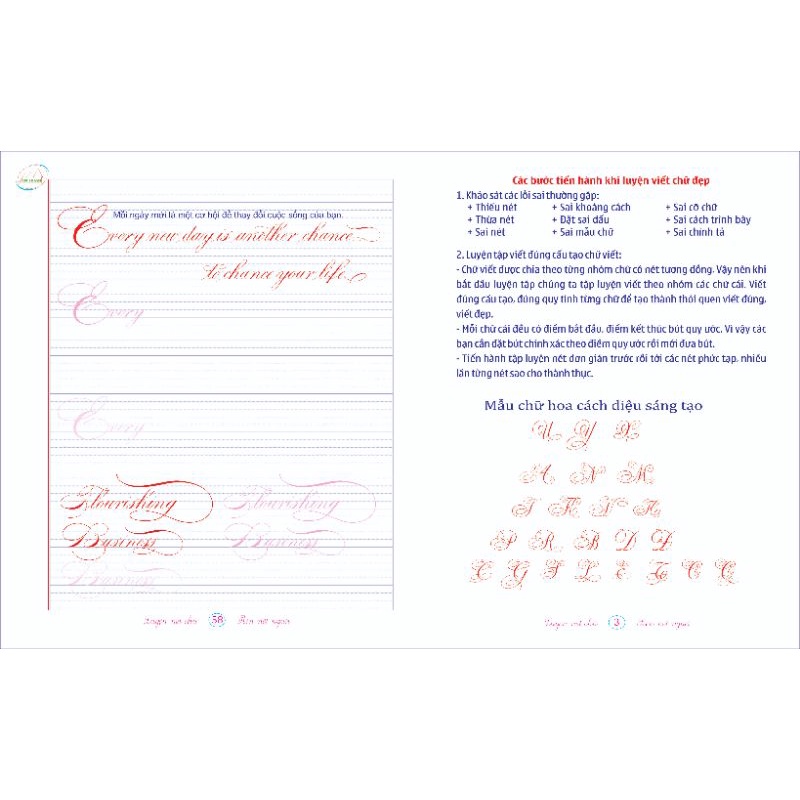 Mỗi ngày mới là một cơ hội để thay đổi cuộc sống của bạn.
Every new day is another chance
to chance your life
Every
Every
Flourishing Flourishing
Bysiness Bysiness
Bysiness
58
Các bước tiến hành khi luyện viết chữ đẹp
1. Khảo sát các lỗi sai thường gặp:
+ Thiếu nét + Sai khoảng cách + Sai cỡ chữ
+ Thừa nét + Đặt sai dấu + Sai cách trình bày
+ Sai nét + Sai mẫu chữ + Sai chính tả
2. Luyện tập viết đúng cấu tạo chữ viết:
- Chữ viết được chia theo từng nhóm chữ có nét tương đồng. Vậy nên khi
bắt đầu luyện tập chúng ta tập luyện viết theo nhóm các chữ cái. Viết
đúng cấu tạo, đúng quy tình từng chữ để tạo thành thói quen viết đúng,
viết đẹp.
- Mỗi chữ cái đều có điểm bắt đầu, điểm kết thúc bút quy ước. Vì vậy các
bạn cần đặt bút chính xác theo điểm quy ước rồi mới đưa bút.
- Tiến hành tập luyện nét đơn giản trước rồi tới các nét phức tạp, nhiều
lần từng nét sao cho thành thục.
Mẫu chữ hoa cách điệu sáng tạo
U Y X
A N M
P R B D Đ
3